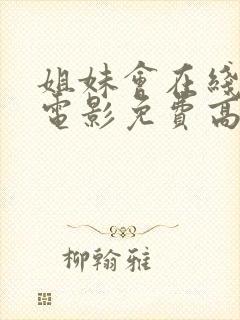 姐妹會在綫
電影免費高
柳翰雅